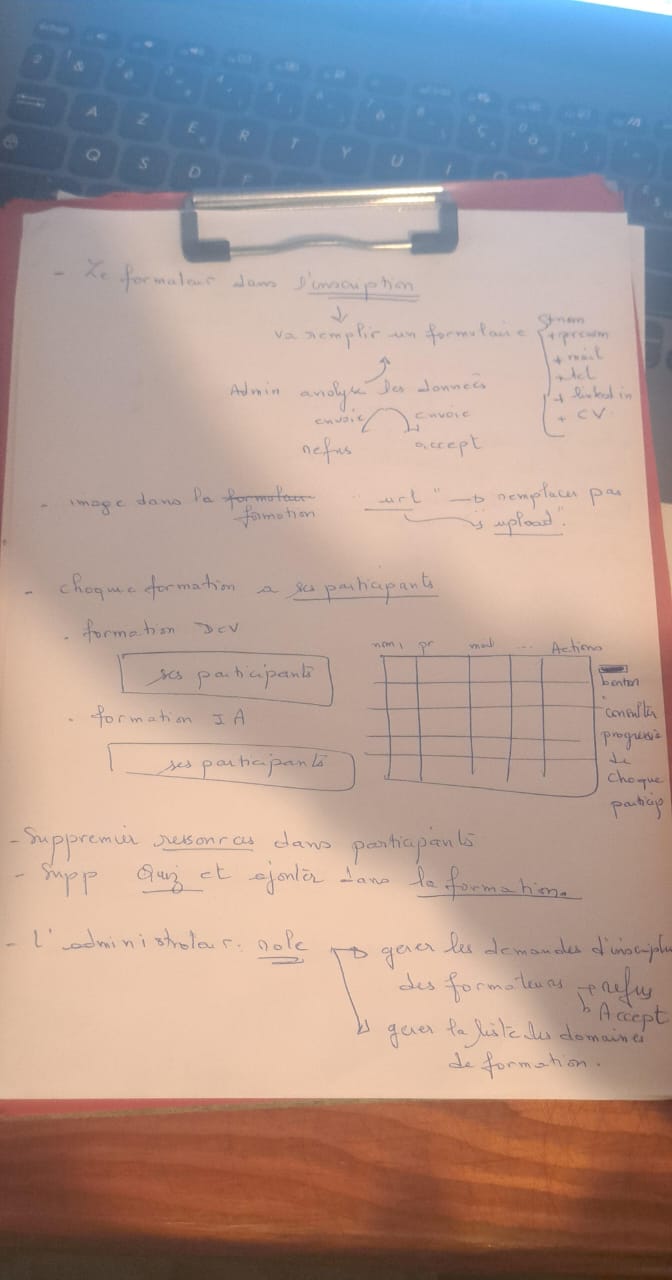 - Le formateur dans l'inscription
↓
va remplir un formulaire
nom
+ prenom
+ mail
+ tel
+ linked in
+ CV
Admin analyse les données
envoie envoie
refus accept
- image dans la formateur "url" → remplacer par
formation "upload".
- chaque formation a ses participants
. formation DEV
ses participants
nom, pr mail ... Actions
bouton
consulter
progressio
de
chaque
particip
. formation IA
ses participants
- Supprimer ressources dans participants
- Supp Quiz et ajouter dans la formation.
- L'administrateur: role → gerer les demandes d'inscription
des formateurs → refus
↳ Accept
↳ gerer la liste des domaines
de formation.